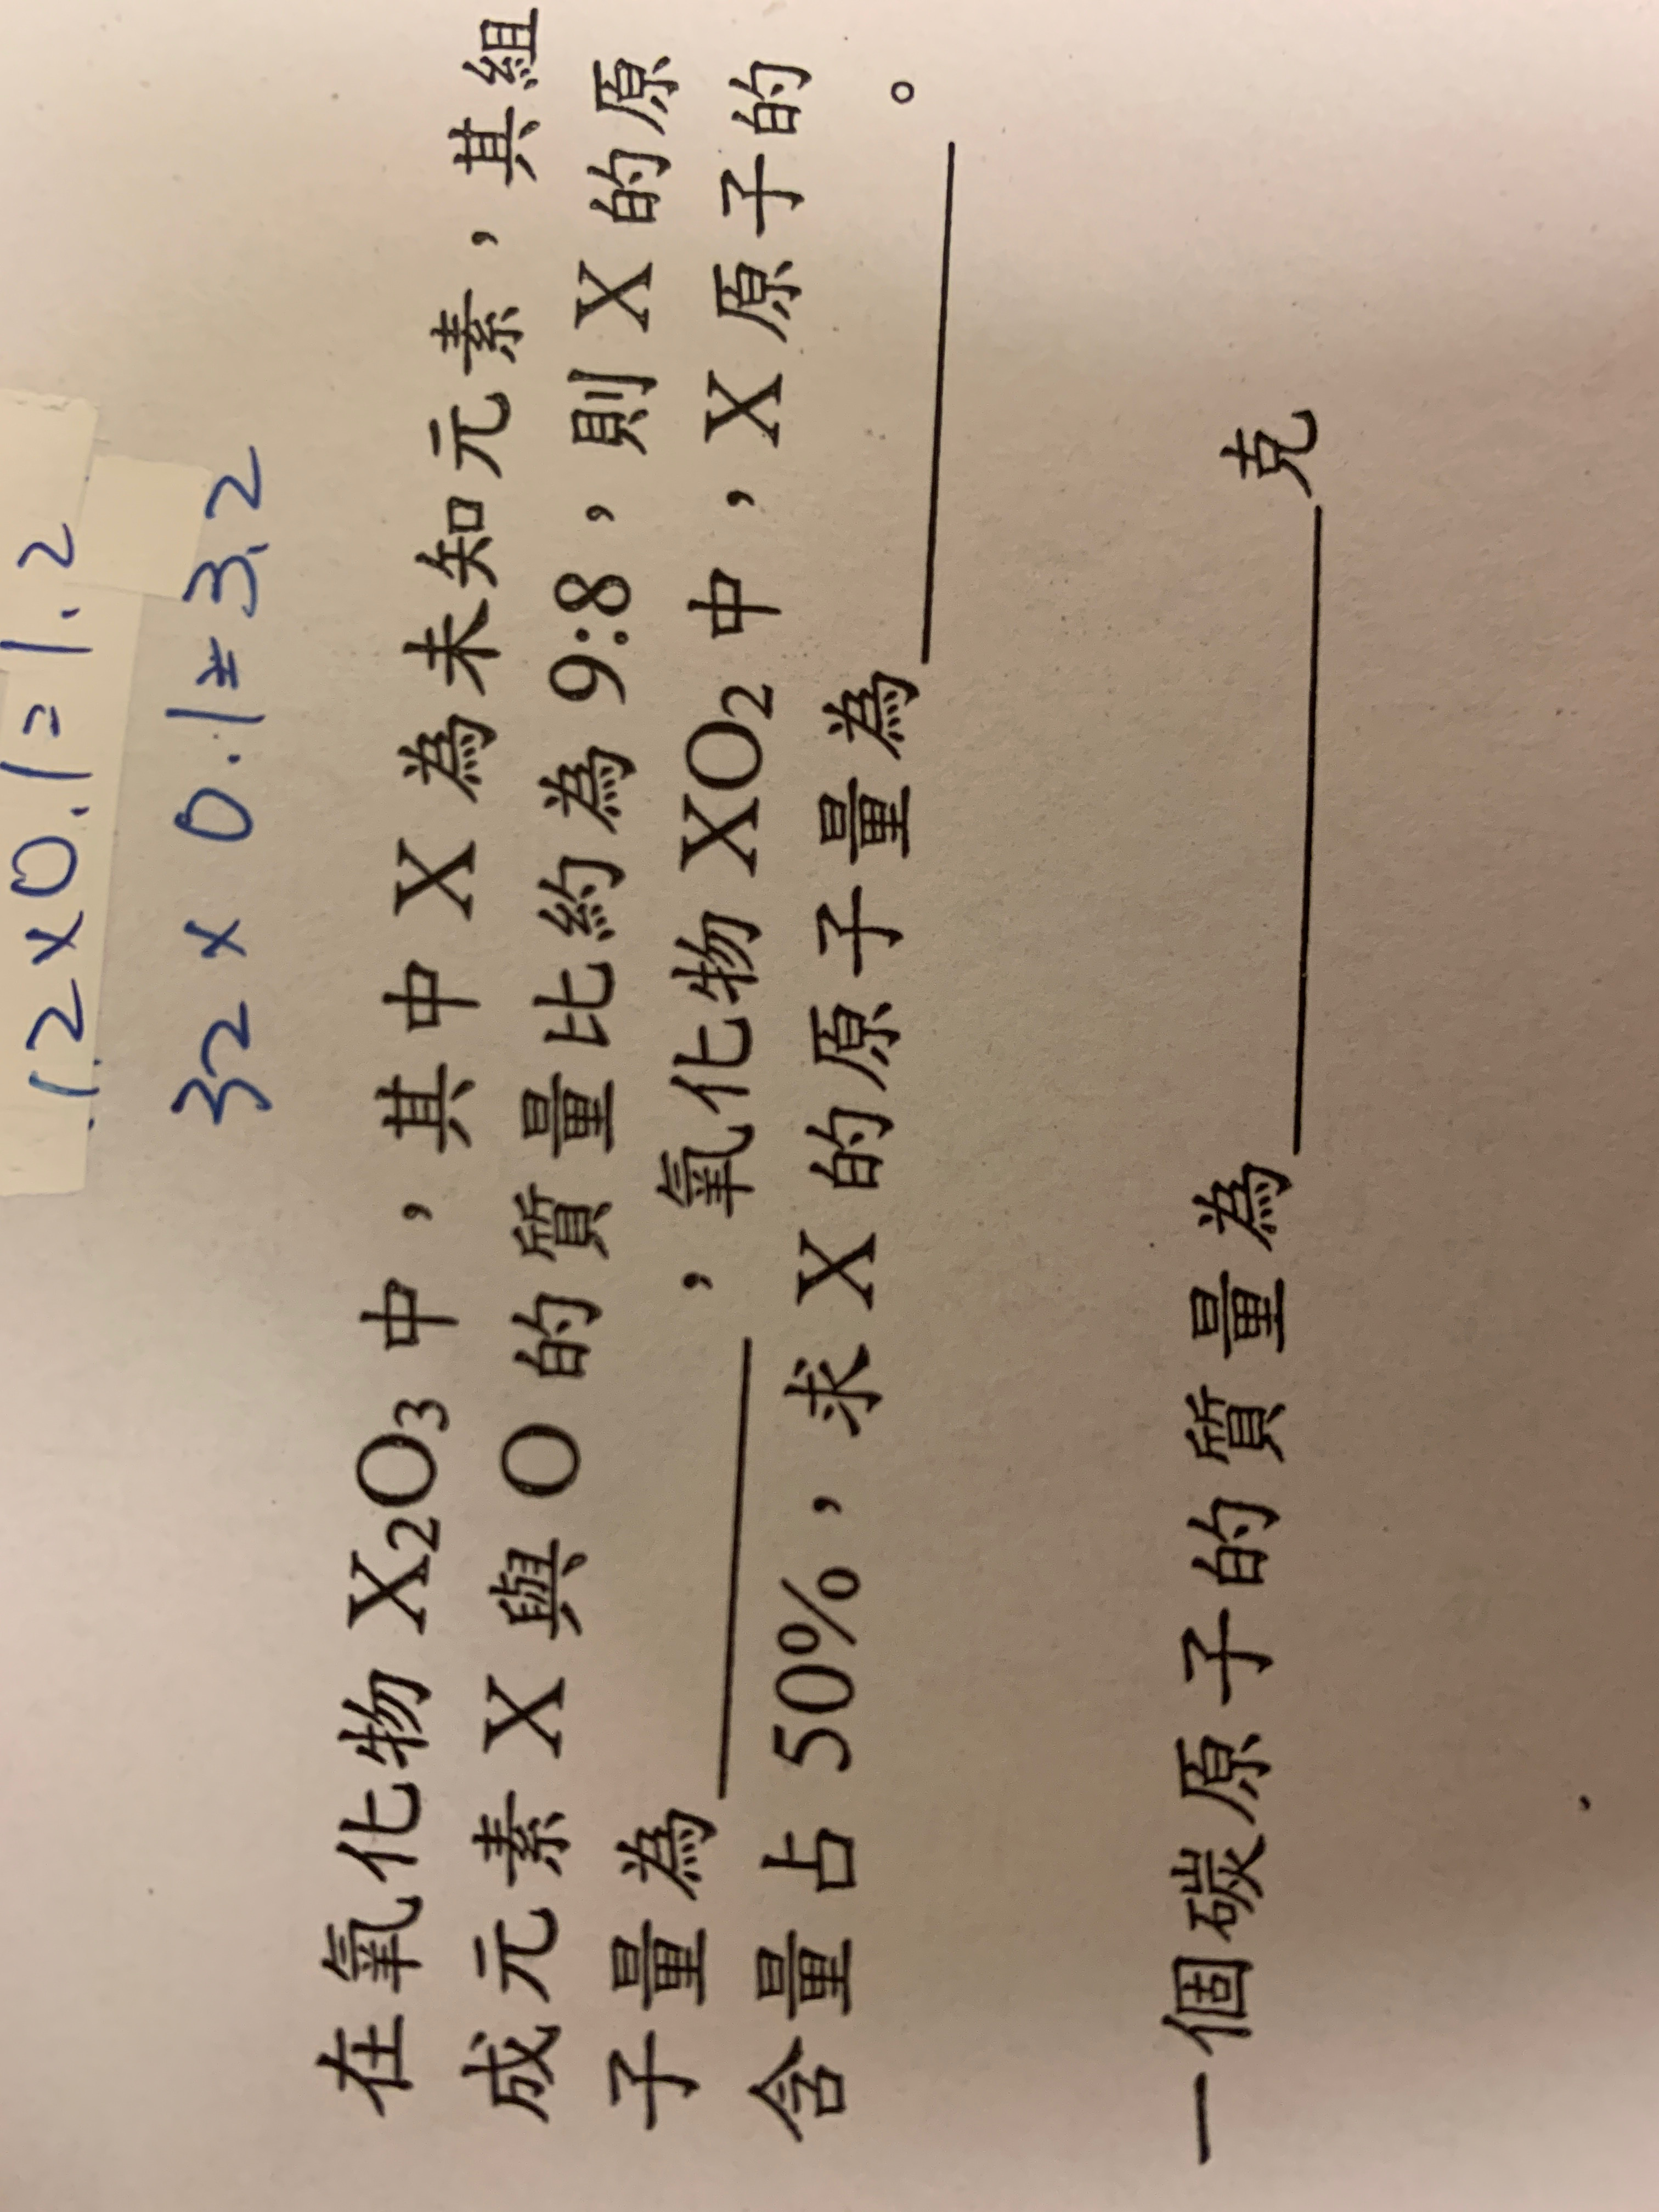 12×0.1=1.2
32×0.1=3.2
在氧化物 X₂O₃ 中，其中 X 為未知元素，其組
成元素 X 與 O 的質量比約為 9:8，則 X 的原
子量為________，氧化物 XO₂ 中，X 原子的
含量占 50%，求 X 的原子量為________。
一個碳原子的質量為________克